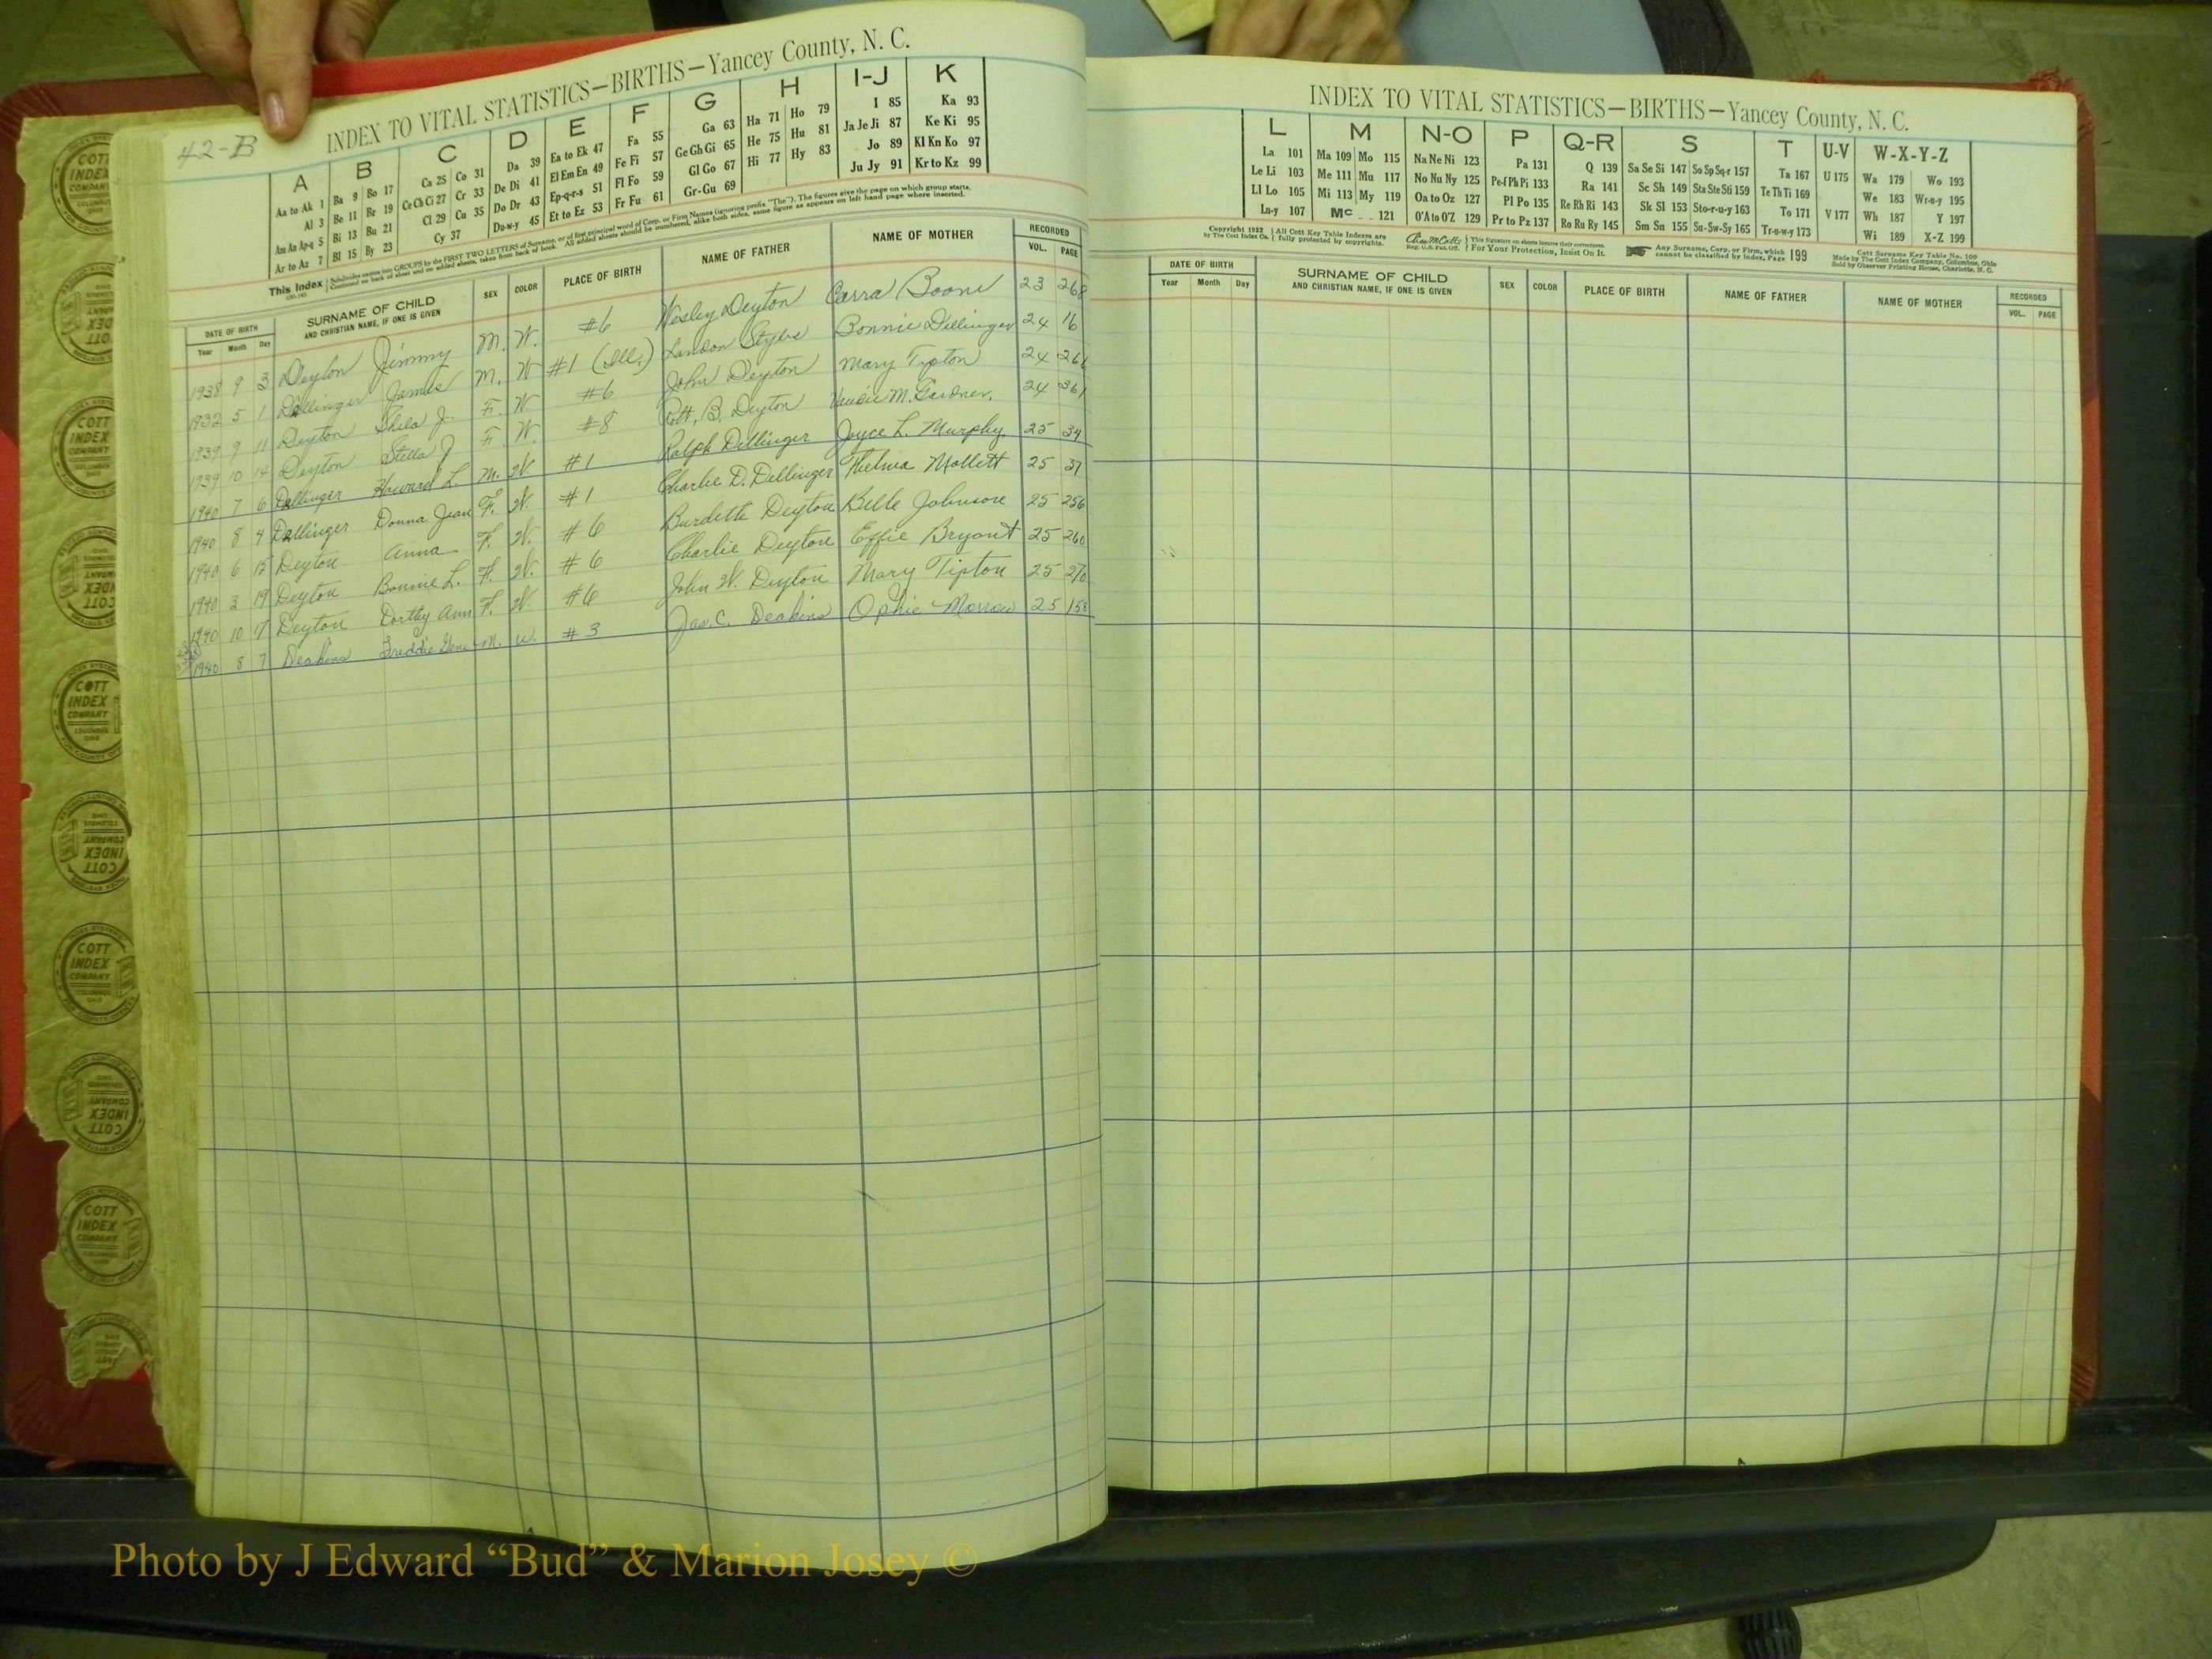 42-B
INDEX TO VITAL STATISTICS—BIRTHS—Yancey County, N. C.
A B C D E F G H I-J K
Aa to Ak 1 Ba 9 Bo 17 Ca 25 Co 31 Da 39 Ea to Ek 47 Fa 55 Ga 63 Ha 71 Ho 79 I 85 Ka 93
Al 3 Be 11 Br 19 Ce Ch Ci 27 Cr 33 De Di 41 El Em En 49 Fe Fi 57 Ge Gh Gi 65 He 75 Hu 81 Ja Je Ji 87 Ke Ki 95
Am An Ap-q 5 Bi 13 Bu 21 Cl 29 Cu 35 Do Dr 43 Ep-q-r-s 51 Fl Fo 59 Gl Go 67 Hi 77 Hy 83 Jo 89 Kl Kn Ko 97
Ar to Az 7 Bl 15 By 23 Cy 37 Du-w-y 45 Et to Ez 53 Fr Fu 61 Gr-Gu 69 Ju Jy 91 Kr to Kz 99
This Index Subdivides names into GROUPS by the FIRST TWO LETTERS of Surname, or of first principal word of Corp. or Firm Names (ignoring prefix "The"). The figures give the page on which group starts.
Continued on back of sheet and on added sheets, taken from back of book. All added sheets should be numbered, alike both sides, same figure as appears on left hand page where inserted.
DATE OF BIRTH SURNAME OF CHILD SEX COLOR PLACE OF BIRTH NAME OF FATHER NAME OF MOTHER RECORDED
Year Month Day AND CHRISTIAN NAME, IF ONE IS GIVEN VOL. PAGE
1938 9 3 Deyton Jimmy M. W. #6 Wesley Deyton Carra Boone 23 268
1932 5 1 Dellinger James M. W #1 (Ill.) Landon Styles Bonnie Dillinger 24 16
1939 9 11 Deyton Shela J. F. W #6 John Deyton Mary Tipton 24
1939 10 14 Deyton Stella J F. W. #8 Robt. B. Deyton M. Gardner. 24 361
1940 7 6 Dellinger Howard L. M. W #1 Ralph Dellinger Joyce L. Murphy 25 34
1940 8 4 Dellinger Donna Jean F. W. #1 Charlie D. Dellinger Thelma Mollett 25 37
1940 6 15 Deyton Anna F. W. #6 Burdette Deyton Belle Johnson 25 256
1940 3 19 Deyton Bonnie L. F. W. #6 Charlie Deyton Effie Bryant 25 260
1940 10 17 Deyton Dorthy Ann F. W. #6 John W. Deyton Mary Tipton 25 270
1940 8 7 Deakins Freddie Gene M. W. #3 Jas. C. Deakins Ophie Morrow 25 158
INDEX TO VITAL STATISTICS—BIRTHS—Yancey County, N. C.
L M N-O P Q-R S T U-V W-X-Y-Z
La 101 Ma 109 Mo 115 Na Ne Ni 123 Pa 131 Q 139 Sa Se Si 147 So Sp Sq-r 157 Ta 167 U 175 Wa 179 Wo 193
Le Li 103 Me 111 Mu 117 No Nu Ny 125 Pe-f Ph Pi 133 Ra 141 Sc Sh 149 Sta Ste Sti 159 Te Th Ti 169 We 183 Wr-u-y 195
Ll Lo 105 Mi 113 My 119 Oa to Oz 127 Pl Po 135 Re Rh Ri 143 Sk Sl 153 Sto-r-u-y 163 To 171 V 177 Wh 187 Y 197
Lu-y 107 Mc 121 O'A to O'Z 129 Pr to Pz 137 Ro Ru Ry 145 Sm Sn 155 Su-Sw-Sy 165 Tr-u-w-y 173 Wi 189 X-Z 199
Copyright 1922 by The Cott Index Co. All Cott Key Table Indexes are fully protected by copyrights. Reg. U.S. Pat. Off. This signature on sheets insures their correctness. For Your Protection, Insist On It. Any Surname, Corp. or Firm, which cannot be classified by Index, Page 199 Cott Surname Key Table No. 100
Made by The Cott Index Company, Columbus, Ohio
Sold by Observer Printing House, Charlotte, N. C.
DATE OF BIRTH SURNAME OF CHILD SEX COLOR PLACE OF BIRTH NAME OF FATHER NAME OF MOTHER RECORDED
Year Month Day AND CHRISTIAN NAME, IF ONE IS GIVEN VOL. PAGE
COTT INDEX COMPANY COLUMBUS OHIO
Photo by J Edward “Bud” & Marion Josey ©